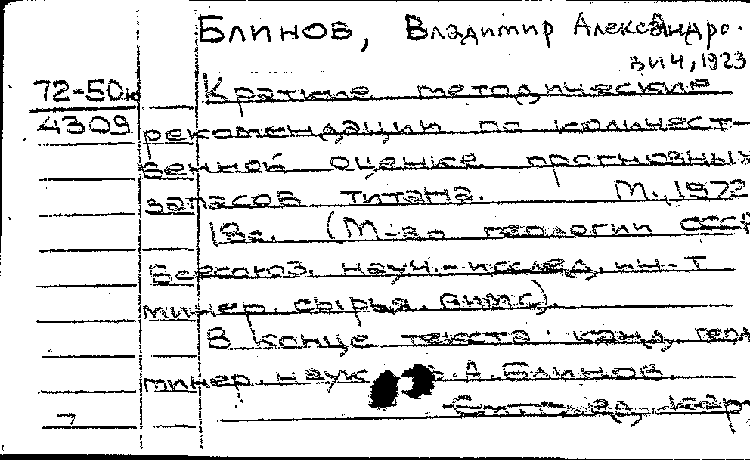 Блинов, Владимир Александро-
вич, 1923
72-50ю Краткие методические
4309 рекомендации по количест-
венной оценке прогнозных
запасов титана. М., 1972
18с. (М-во геологии СССР
Всесоюз. науч.-исслед. ин-т
минер. сырья. ВИМС).
В конце текста: канд. геол.
минер. наук В.А. Блинов.